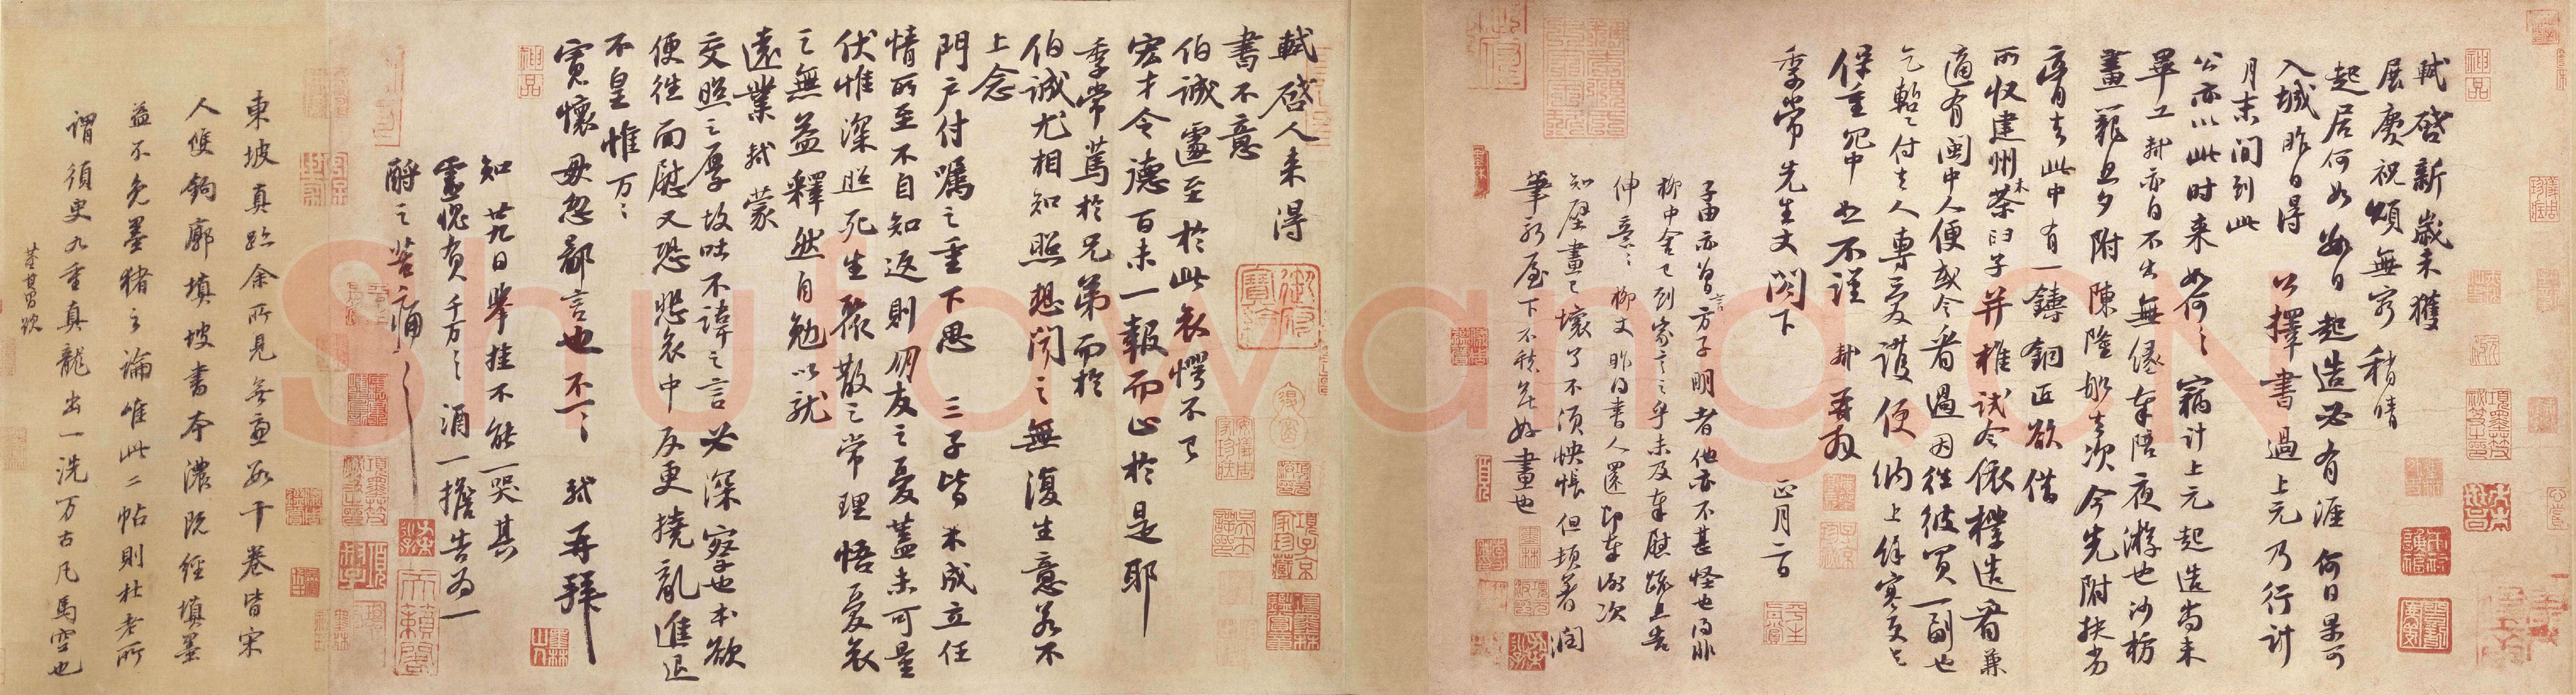 軾啓新歲未獲
展慶祝頌無窮稍晴
起居何如數日起造必有涯何日果可
入城昨日得公擇書過上元乃行計
月末間到此
公亦以此时来如何何竊计上元起造尚未
畢工軾亦自不出無缘奉陪夜游也沙枋
畫籠旦夕附陳隆船去次今先附扶劣
膏去此中有一鑄銅匠欲借
所收建州木茶臼子并椎試令依樣造看兼
適有閩中人便或令看過因往彼買一副也
乞暫付去人專爱護便納上餘寒更乞
保重冗中恕不謹軾再拜
季常先生丈閤下正月二日
子由亦曾言方子明者他亦不甚怪也得非
柳中舍已到家言之乎未及奉慰疏且告
伸意意柳丈昨得書人還即奉謝次
知壁畫已壞了不須怏悵但頓著潤
筆新屋下不愁無好畫也
軾啓人来得
書不意
伯誠遽至於此哀愕不已
宏才令德百未一報而止於是耶
季常篤於兄弟而於
伯誠尤相知照想聞之無復生意若不
上念
門户付囑之重下思三子皆未成立任
情所至不自知返則朋友之憂蓋未可量
伏惟深照死生聚散之常理悟憂哀
之無益釋然自勉以就
遠業軾蒙
交照之厚故吐不諱之言必深察也本欲
便往面慰又恐悲哀中反更撓亂進退
不皇惟万万
寬懷毋忽鄙言也不一一軾再拜
知廿九日舉掛不能一哭其
靈愧負千万千万酒一擔告為一
酹之苦痛苦痛
東坡真跡余所見無慮數十卷皆宋
人雙鉤廓填坡書本濃既經填墨
益不免墨豬之論唯此二帖則杜老所
謂須臾九重真龍出一洗万古凡馬空也
董其昌跋
Shufawang.CN